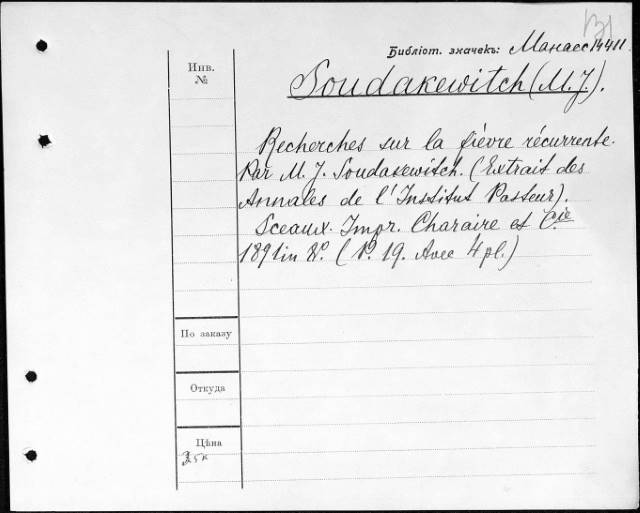 Библіот. значекъ: Манаес 14411
Инв.
№
Soudakewitch (M. J.).
Recherches sur la fièvre récurrente.
Par M. J. Soudakewitch. (Extrait des
Annales de l'Institut Pasteur).
Sceaux. Impr. Charaire et Cie
1891 in 8º. (P. 19. Avec 4 pl.)
По заказу
Откуда
Цѣна